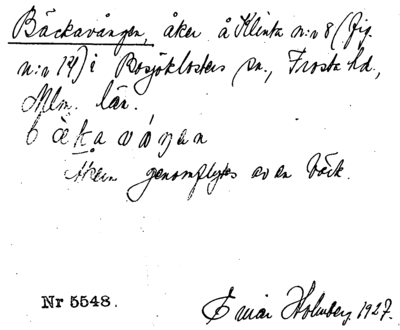 Bäckavången, åker å Klinta n:r 8 (fig.
n:r 14) i Bosjöklosters sn., Frosta hd.,
Mlm. län.
bäkavåŋen
Åkern genomflytes av en bäck.
Nr 5548.
Einar Holmberg 1927.